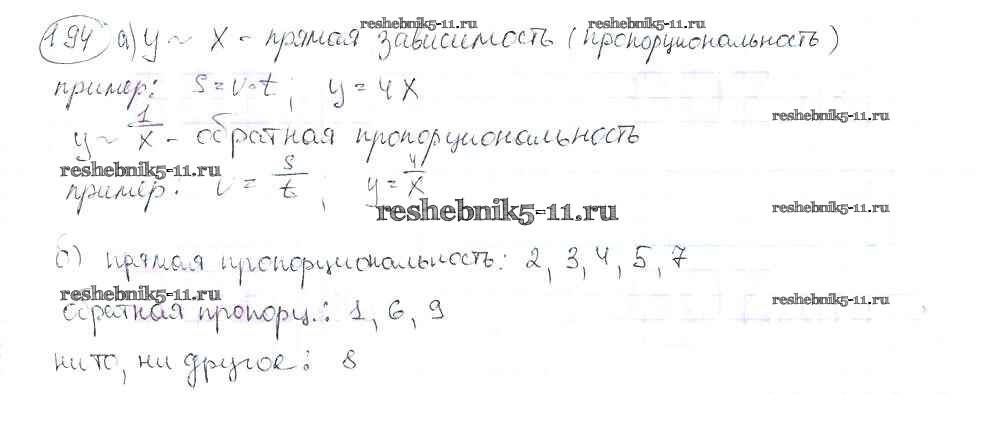 reshebnik5-11.ru reshebnik5-11.ru
194 а) y ~ x - прямая зависимость (пропорциональность)
пример: S = v·t ; y = 4x
reshebnik5-11.ru
y ~ 1/x - обратная пропорциональность
reshebnik5-11.ru
пример: v = s/t ; y = 4/x
reshebnik5-11.ru reshebnik5-11.ru
б) прямая пропорциональность: 2, 3, 4, 5, 7
reshebnik5-11.ru reshebnik5-11.ru
обратная пропорц.: 1, 6, 9
ни то, ни другое: 8